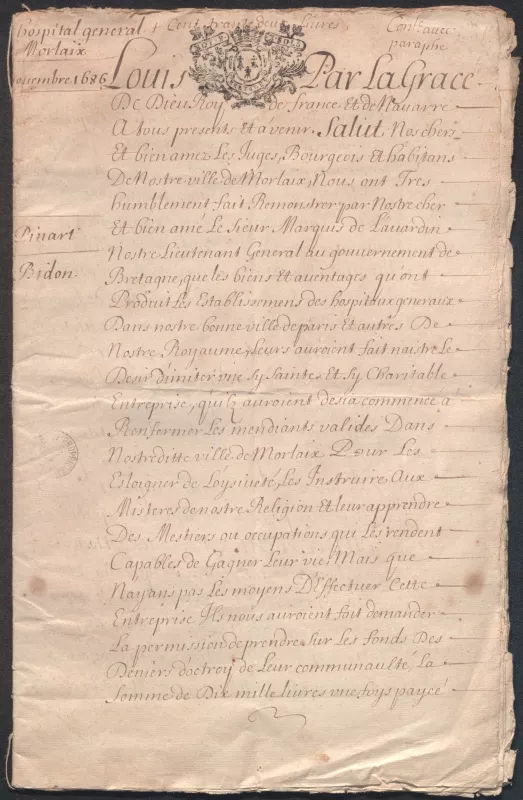 hospital general
Morlaix
novembre 1686
Cent trante deux livres
Cont. avec
paraphe
Louis Par La Grace
De Dieu Roy de france Et de Navarre
A tous presents Et avenir, Salut, Nos chers
Et bien amez Les Juges, Bourgeois Et habitans
De Nostre ville de Morlaix, Nous ont Tres
humblement fait Remonstrer par Nostre cher
Et bien amé Le Sieur Marquis de Lavardin
Nostre Lieutenant General au gouvernement de
Bretagne, que les biens Et aventages qu'ont
Produit Les Establissemens des hospitaux generaux
Dans nostre bonne ville de paris Et autres De
Nostre Royaume, Leurs auroient fait naistre Le
Desir D'imiter une sy Sainte Et sy Charitable
Entreprise, qu'ilz auroient desia commencé a
Renfermer Les mendiants valides Dans
Nostreditte ville de Morlaix Pour Les
Esloigner de Loysiveté, Les Instruire Aux
Misteres de nostre Religion Et leur apprendre
Des Mestiers ou occupations qui Les rendent
Capables de Gagner Leur vie, Mais que
Nayans pas Les moyens D'Effectuer Cette
Entreprise Ils nous auroient fait demander
La permission de prendre sur Les fonds Des
Deniers d'octroy de Leur communaulté, La
Somme de Dix mille livres une foys payée
Pinart
Bidon